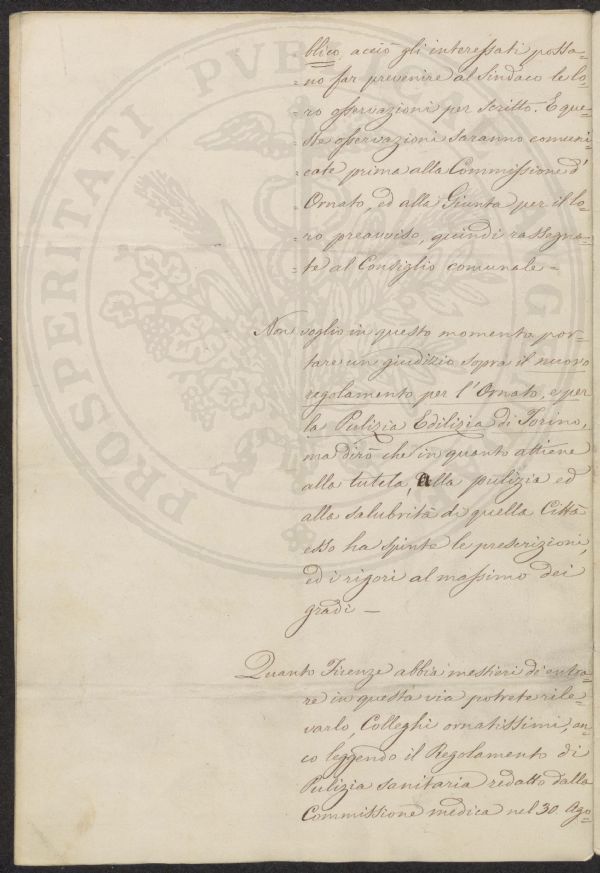 blico, acciò gli interessati possa=
= no far prevenire al Sindaco le lo=
= ro osservazioni per scritto. E que=
= ste osservazioni saranno comuni
= cate prima alla Commissione d'
= Ornato, ed alla Giunta per il lo=
= ro preavviso, quindi rassegna=
= te al Consiglio comunale =
Non voglio in questo momento por=
tare un giudizio sopra il nuovo
regolamento per l'Ornato, e per
la Pulizia Edilizia di Torino,
ma dirò che in quanto attiene
alla tutela, alla pulizia ed
alla salubrità di quella Città
esso ha spinte le prescrizioni,
ed i rigori al massimo dei
gradi —
Quanto Firenze abbia mestieri di entra=
re in questa via potrete rile=
varlo, Colleghi ornatissimi, an=
co leggendo il Regolamento di
Pulizia sanitaria redatto dalla
Commissione medica nel 30. Ago=
PROSPERITATI PVBLIC